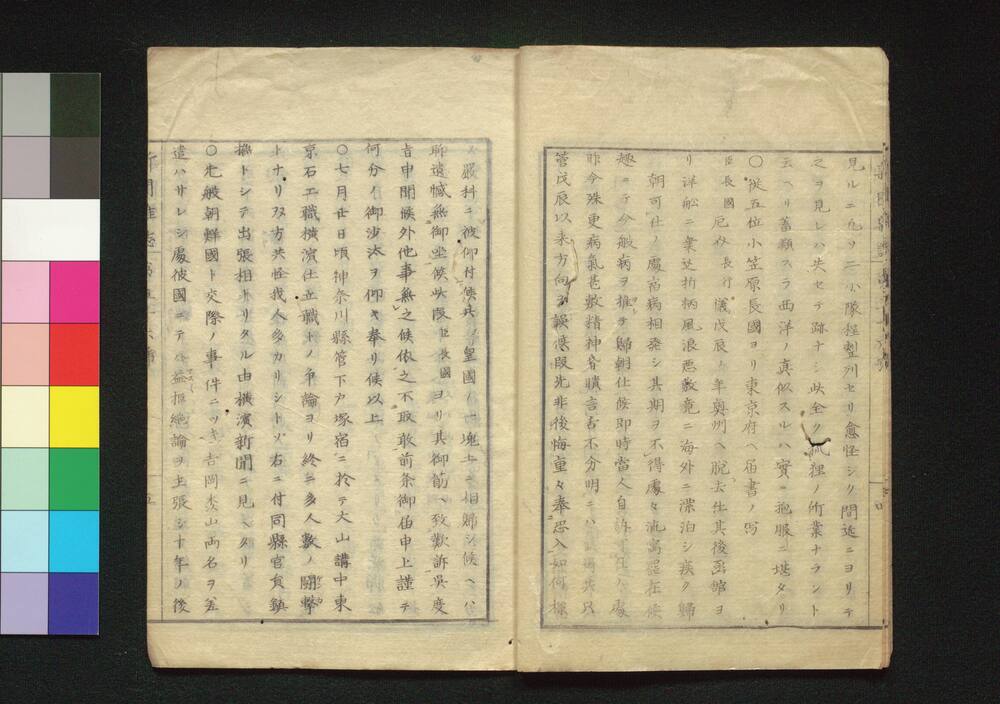 見ルニ凡ソ二小隊程整列セリ愈怪シク間近ニヨリテ
之ヲ見レハ失セテ跡ナシ此全ク狐狸ノ術業ナラント
云ヘリ畜類スラ西洋ノ真似スルハ實ニ抱腹ニ堪タリ
〇従五位小笠原長國ヨリ東京府ヘ届書ノ写
臣長國 厄父長行 儀戊辰ノ年奥州ヘ脱去仕其後函館ヨ
リ洋船ニ乗込折柄風浪悪敷竟ニ海外ニ漂泊シ疾ク歸
朝可仕ノ處宿病相発シ其期ヲ不得處々流寓罷在候
趣ニテ今般病ヲ推テ歸朝仕候即時當人自訴
昨今殊更病氣甚敷精神昏聵言舌不分明ニ
管戊辰以来方向ヲ誤候段先非後悔重々奉恐入如何様
ノ嚴科ニ被仰付候共 皇國ノ一塊土ニ相歸シ候ヘハ
聊遺憾無御坐候此段 臣長國 ヨリ其御筋ヘ致歎訴呉度
旨申聞候外他事無之候依之不取敢前条御伯申上謹テ
何分ノ御沙汰ヲ仰キ奉リ候以上
〇七月廿日頃神奈川縣管下戸塚宿ニ於テ大山講中東
京石工職横濱仕立職トノ争論ヨリ終ニ多人數ノ闘撃
トナリ双方共怪我人多カリシトソ右ニ付同縣官員鎮
撫トシテ出張相トリタル由横濱新聞ニ見ヘタリ
〇先般朝鮮國ト交際ノ事件ニツキ吉岡森山両名ヲ差
遣ハサレシ處彼國ニテハ益拒絶論ヲ主張シ十年ノ後